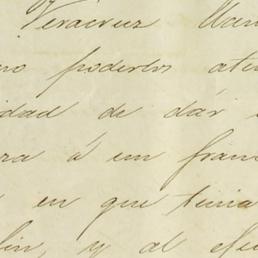 Veracruz
no poderlos aten
idad de dár
ra á un fran
en que tenia
lin, y al efec